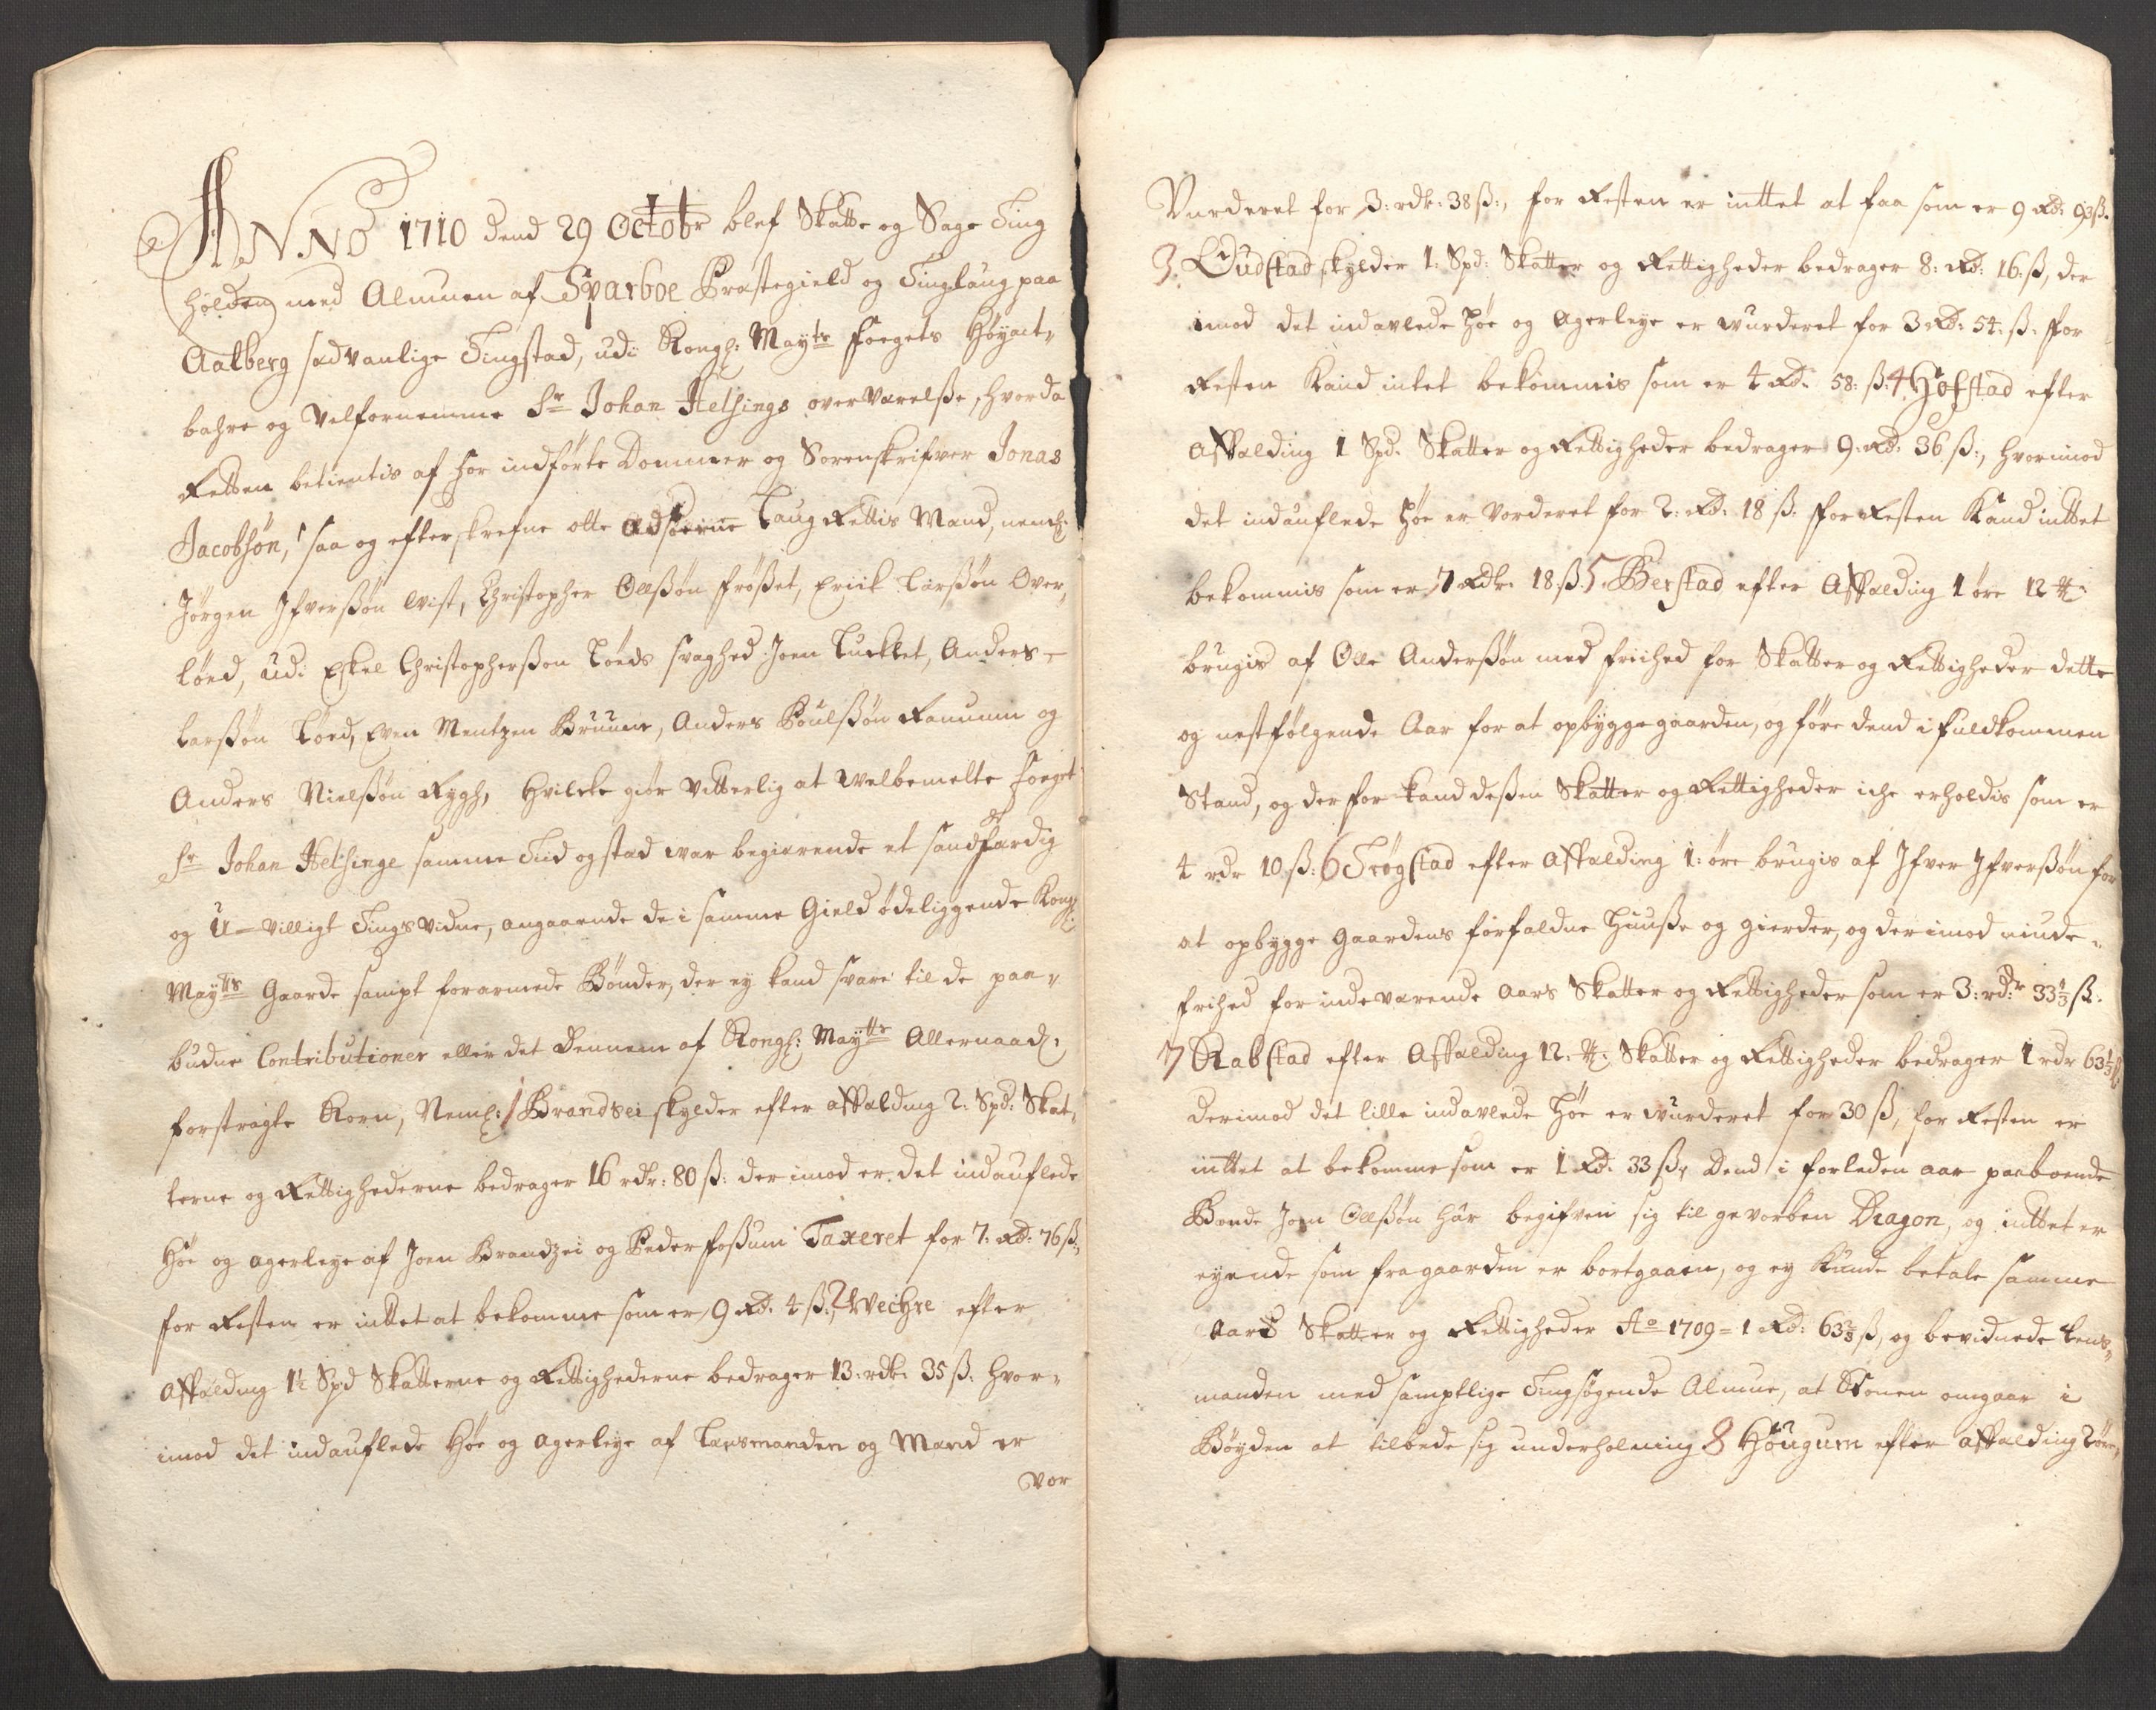 ANNO 1710 dend 29 Octobr blef Skatte og Sage Ting
holden med Almuen af Sparboe Præstegield og Tinglaug paa
Aalberg sædvanlige Tingstad, udi Kongl: Mayts fogets Høyact-
bahre og velfornemme Sr Johan Helsings overværelße, hvorda
Retten betientis af her indførte Dommer og Sorenskrifver Jonas
Jacobsøn, saa og efterskrefne otte Laug Rettis Mænd, neml:
Jørgen Ifverßøn Wist, Christopher Ollßøn frøßet, Erick Larßøn Over-
løed, udi Eskel Christopherßøn Løeds svaghed Joen Lucklet, Anders
Larßøn Løed, Even Mentzen Bruum, Anders Poulßøn Ranumm og
Anders Nielßøn Rygh, Hvilcke giør vitterlig at welbemelte foget
Sr Johan Helsinge samme Tiid og stæd war begiærende et sandfærdig
og U-villigt Tingsvidne, angaaende de i samme Gield ødeliggende Kongl:
Maytts Gaarde sampt forarmede Bønder, der ey kand svare til de paa-
budne Contributioner eller det dennem af Kongl: Maytts Allernaad:
forstragte Korn, Neml: 1 Brandsei skylder efter affælding 2: Spd: Skat-
terne og Rettighederne bedrager 16 rdr: 80 ß: der imod er det indauflede
Høe og agerleye af Joen Brandzei og Peder foßum Taxeret for 7: Rd: 76 ß:,
for Resten er inttet at bekomme som er 9 Rd. 4 ß: 2 Wechre efter
affælding 1½ Spd Skatterne og Rettighederne bedrager 13: rdr: 35 ß: hvor-
imod det indauflede Høe og agerleye af Lænsmanden og Mænd er
vor
Vurderet for 3: rdr: 38 ß:, for Resten er inttet at faa som er 9 Rd: 93 ß.
3. Oudstad skylder 1: Spd: Skatter og Rettigheder bedrager 8: Rd: 16: ß, der
imod det indavlede høe og agerleye er wurderet for 3 Rd: 54: ß: for
Resten Kand intet bekommis som er 4 Rd. 58: ß: 4 Hofstad efter
affælding 1 Spd. Skatter og Rettigheder bedrager 9: Rd: 36 ß:, hvorimod
det indauflede høe er vorderet for 2: Rd: 18 ß. for Resten Kand inttet
bekommis som er 7 Rdr. 18 ß. 5. Berstad efter affælding 1 øre 12 [mk]
brugis af Olle Anderßøn med friihed for Skatter og Rettigheder dette
og nestfølgende Aar for at opbygge gaarden, og føre dend i fuldkommen
Stand, og der for kand deßen Skatter og Rettigheder iche erholdis som er
4 rdr 10 ß: 6 Trøgstad efter affælding 1: øre brugis af Ifver Ifverßøn for
at opbygge Gaardens forfaldne Huuße og gierder, og der imod niude
frihed for indeværende aars Skatter og Rettigheder som er 3: rdr 33⅓ ß:
7 Rabstad efter Affælding 12: Skatter og Rettigheder bedrager 1 rdr 63⅓ ß:
derimod det lille indavlede høe er wurderet for 30 ß, for Resten er
inttet at bekomme som er 1 Rd. 33 ß, Dend i forleden aar paaboende
Bonde Joen Ollßøn har begifven sig til gevorben Dragon, og inttet er
eyende som fra gaarden er bortgaaen, og ey Kunde betale samme
Aars Skatter og Rettigheder Ao 1709 = 1 Rd: 63⅔ ß, og bevidnede Lens-
manden med samptlige Tingsøgende Almue, at Konen omgaar i
Bøyden at tilbede sig underholning 8 Hougum efter affælding 2 øre